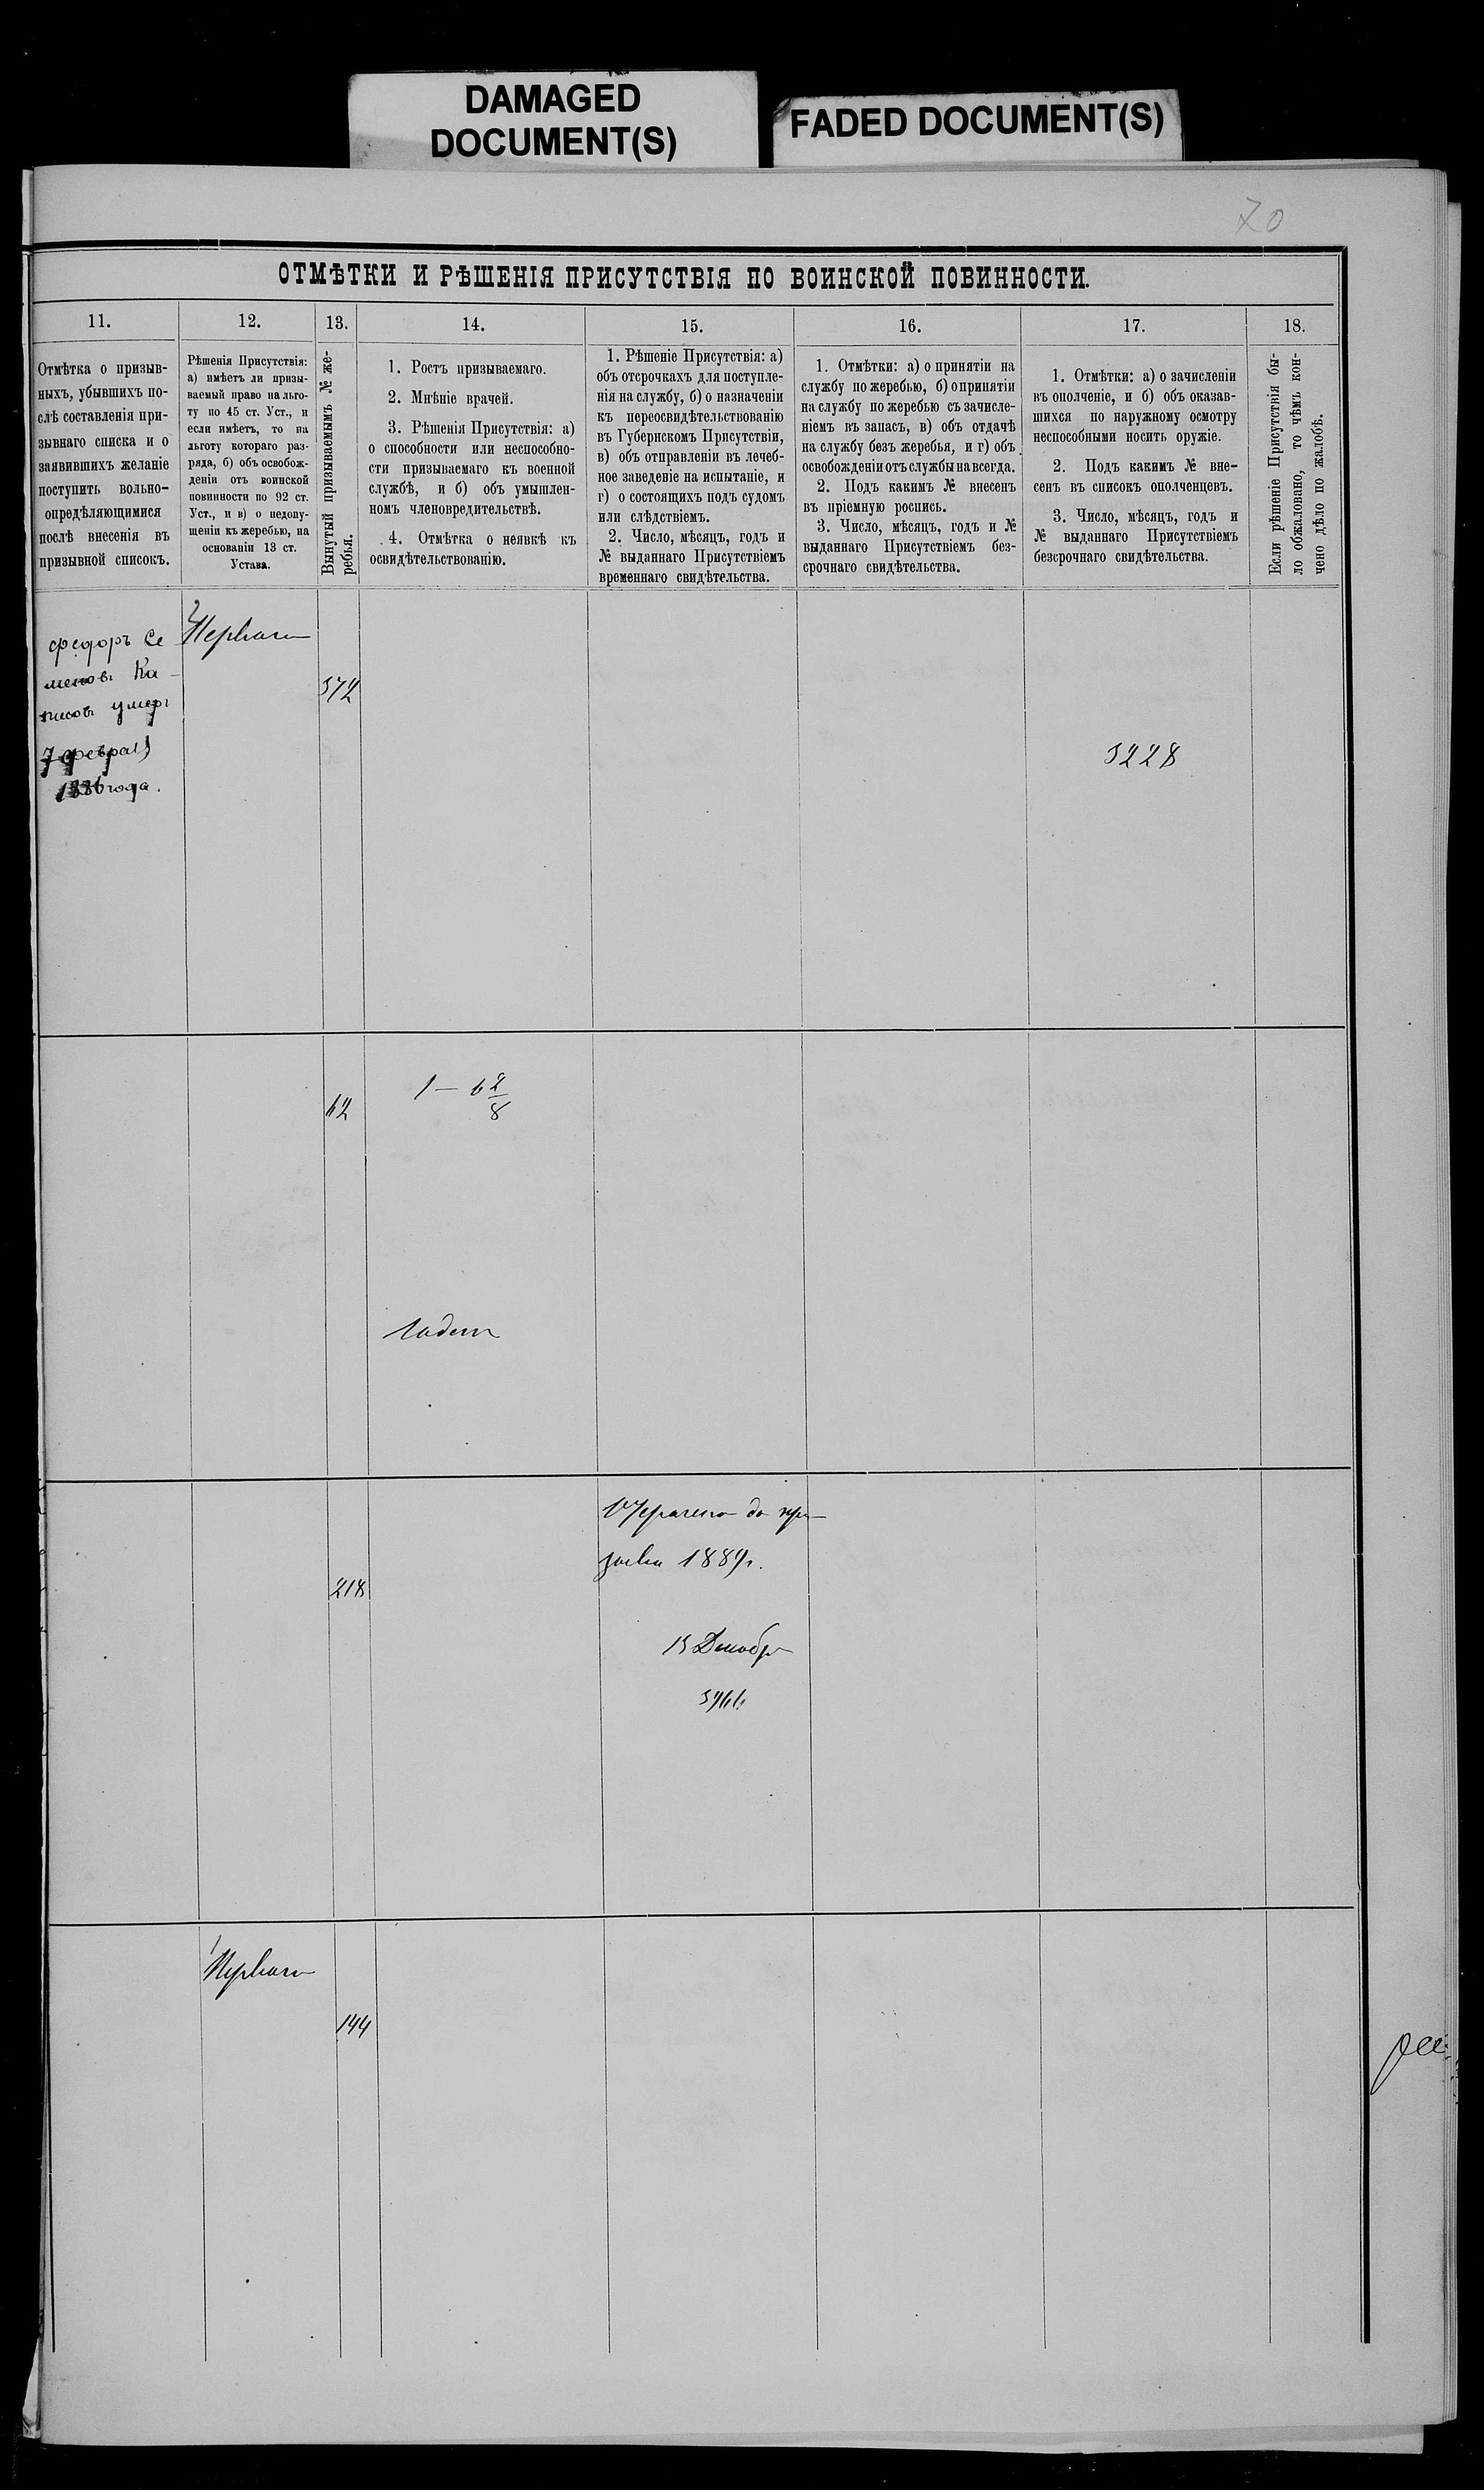 DAMAGED
DOCUMENT(S)
FADED DOCUMENT(S)
70
ОТМѢТКИ И РѢШЕНІЯ ПРИСУТСТВІЯ ПО ВОИНСКОЙ ПОВИННОСТИ.
11.
Отмѣтка о призыв-
ныхъ, убывшихъ по-
слѣ составленія при-
зывнаго списка и о
заявившихъ желаніе
поступить вольно-
опредѣляющимися
послѣ внесенія въ
призывной списокъ.
12.
Рѣшенія Присутствія:
а) имѣетъ ли призы-
ваемый право на льго-
ту по 45 ст. Уст., и
если имѣетъ, то на
льготу котораго раз-
ряда, б) объ освобож-
деніи отъ воинской
повинности по 92 ст.
Уст., и в) о недопу-
щеніи къ жеребью, на
основаніи 13 ст.
Устава.
13.
Вынутый призываемымъ № же-
ребья.
14.
1. Ростъ призываемаго.
2. Мнѣніе врачей.
3. Рѣшенія Присутствія: а)
о способности или неспособно-
сти призываемаго къ военной
службѣ, и б) объ умышлен-
номъ членовредительствѣ.
4. Отмѣтка о неявкѣ къ
освидѣтельствованію.
15.
1. Рѣшеніе Присутствія: а)
объ отсрочкахъ для поступле-
нія на службу, б) о назначеніи
къ переосвидѣтельствованію
въ Губернскомъ Присутствіи,
в) объ отправленіи въ лечеб-
ное заведеніе на испытаніе, и
г) о состоящихъ подъ судомъ
или слѣдствіемъ.
2. Число, мѣсяцъ, годъ и
№ выданнаго Присутствіемъ
временнаго свидѣтельства.
16.
1. Отмѣтки: а) о принятіи на
службу по жеребью, б) о принятіи
на службу по жеребью съ зачисле-
ніемъ въ запасъ, в) объ отдачѣ
на службу безъ жеребья, и г) объ
освобожденіи отъ службы навсегда.
2. Подъ какимъ № внесенъ
въ пріемную роспись.
3. Число, мѣсяцъ, годъ и №
выданнаго Присутствіемъ без-
срочнаго свидѣтельства.
17.
1. Отмѣтки: а) о зачисленіи
въ ополченіе, и б) объ оказав-
шихся по наружному осмотру
неспособными носить оружіе.
2. Подъ какимъ № вне-
сенъ въ списокъ ополченцевъ.
3. Число, мѣсяцъ, годъ и
№ выданнаго Присутствіемъ
безсрочнаго свидѣтельства.
18.
Если рѣшеніе Присутствія бы-
ло обжаловано, то чѣмъ кон-
чено дѣло по жалобѣ.
Федоръ Се
меновъ Ка-
умеръ
7 февраля
1886 года.
372
3228
62
1 – 6 2/8
Годен
218
до при
зыва 1887г.
15 Декабр
3766
144